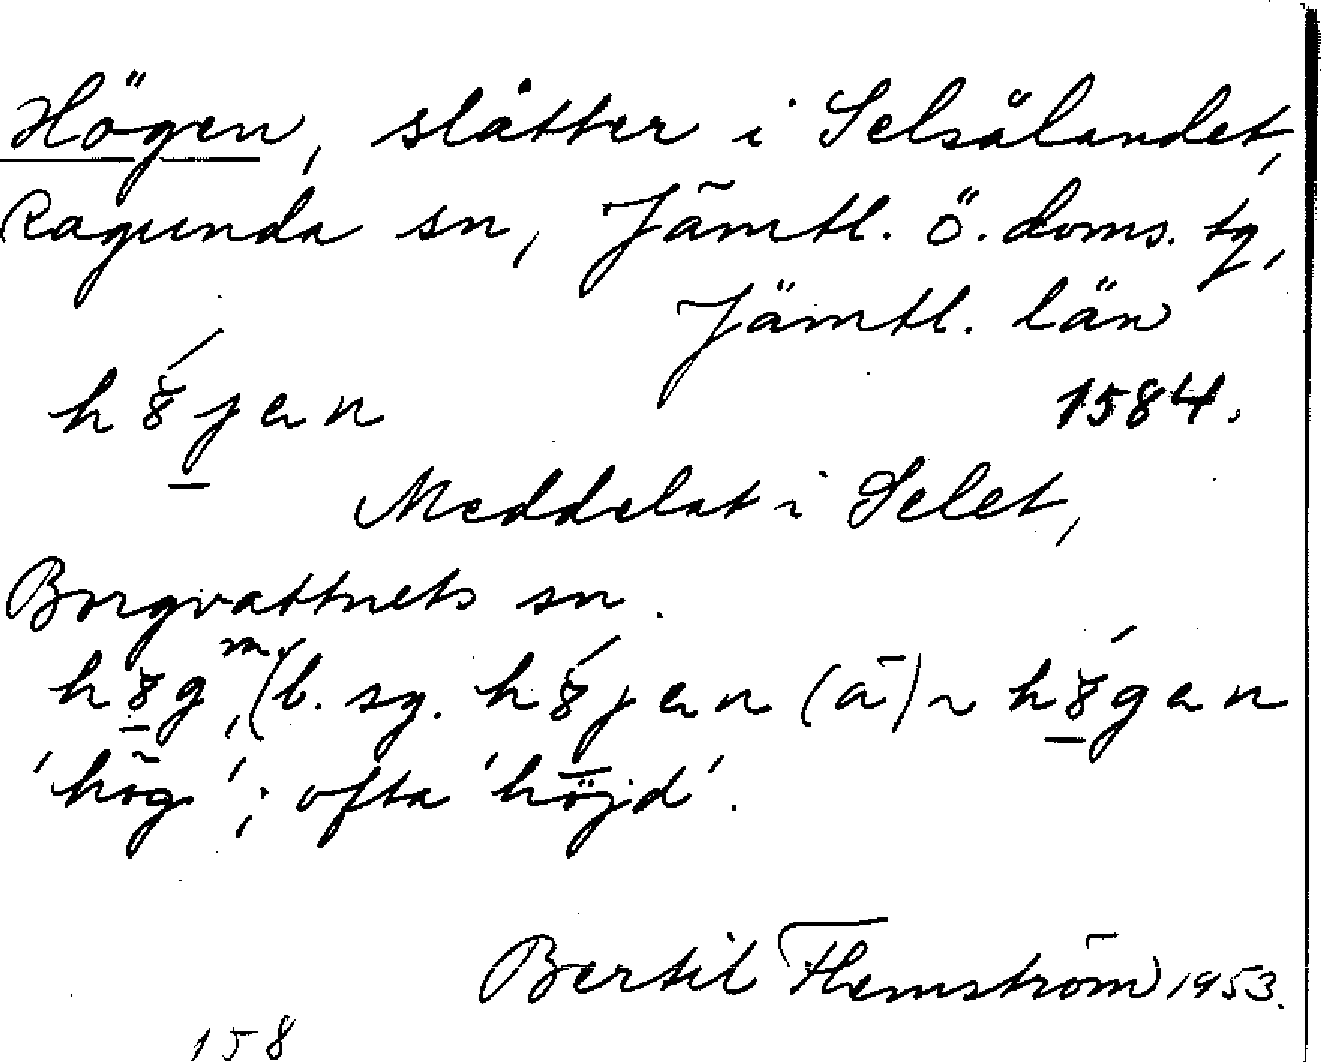 Högen, slåtter i Selsålandet,
Ragunda sn, Jämtl. ö. doms. tg,
Jämtl. län
1584.
Meddelat i Selet,
Borgvattnets sn.
m., (b. sg. (ä) ~
'hög'; ofta 'höjd'.
Bertil Flemström 1953.
158